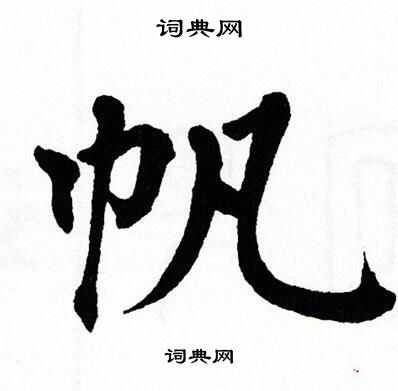 词典网
帆
词典网